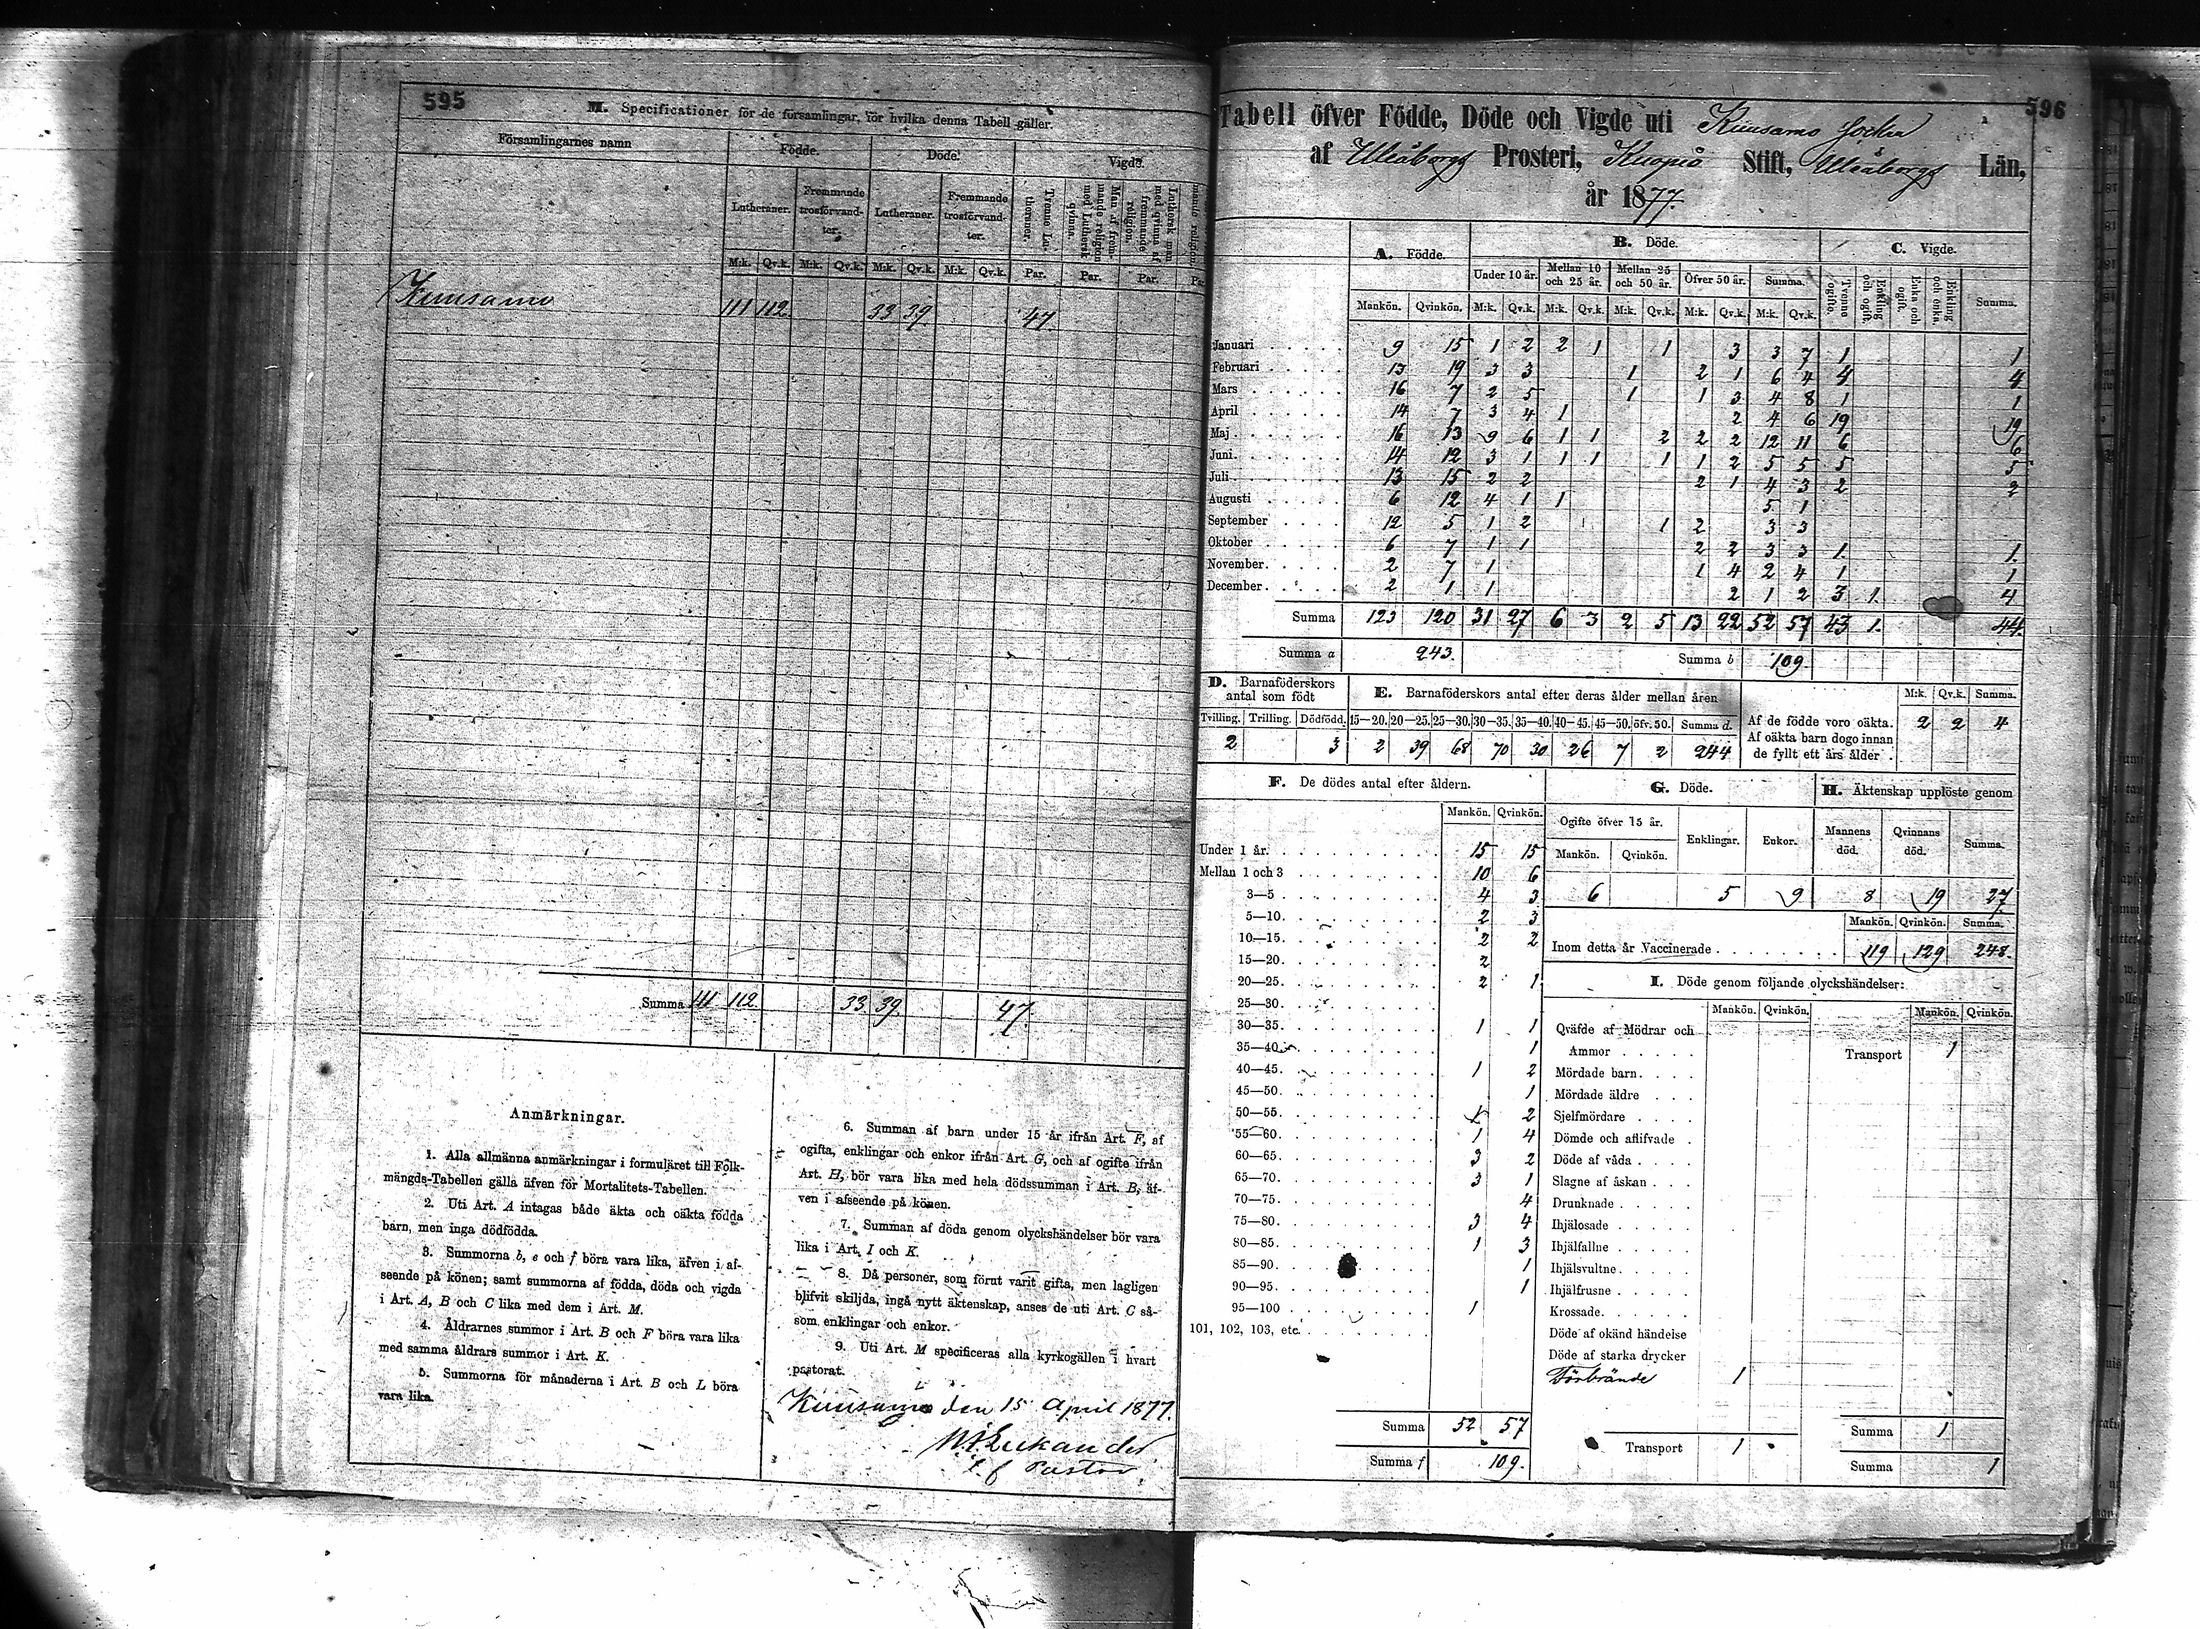 595
M. Specificationer för de församlingar, för hvilka denna Tabell gäller.
Församlingarnes namn | Födde. | Döde. | Vigde.
Lutheraner. | Fremmande trosförvandter. | Lutheraner. | Fremmande trosförvandter. | Trenne Lutheraner. | Man af fremmande religion med Luthersk qvinna. | Luthersk man med qvinna af fremmande religion.
M:k. | Qv.k. | M:k. | Qv.k. | M:k. | Qv.k. | M:k. | Qv.k. | Par. | Par. | Par.
Kuusamo 111 112. 33 39. 47.
Summa 111 112. 33. 39. 47.
Anmärkningar.
1. Alla allmänna anmärkningar i formuläret till Folk-
mängds-Tabellen gälla äfven för Mortalitets-Tabellen.
2. Uti Art. A intagas både äkta och oäkta födda
barn, men inga dödfödda.
3. Summorna b, e och f böra vara lika, äfven i af-
seende på könen; samt summorna af födda, döda och vigda
i Art. A, B och C lika med dem i Art. M.
4. Åldrarnes summor i Art. B och F böra vara lika
med samma åldrars summor i Art. K.
5. Summorna för månaderna i Art. B och L böra
vara lika.
6. Summan af barn under 15 år ifrån Art. F, af
ogifta, enklingar och enkor ifrån Art. G, och af ogifte ifrån
Art. H, bör vara lika med hela dödssumman i Art. B, äf-
ven i afseende på könen.
7. Summan af döda genom olyckshändelser bör vara
lika i Art. I och K.
8. Då personer, som förut varit gifta, men lagligen
blifvit skiljda, ingå nytt äktenskap, anses de uti Art. C så-
som enklingar och enkor.
9. Uti Art. M specificeras alla kyrkogällen i hvart
pastorat.
Kuusamo den 15 April 1877.
Pastor.
596
Tabell öfver Födde, Döde och Vigde uti Kuusamo Socken
af Uleåborgs Prosteri, Kuopio Stift, Uleåborgs Län,
år 1877.
A. Födde. | B. Döde. | C. Vigde.
Under 10 år. | Mellan 10 och 25 år. | Mellan 25 och 50 år. | Öfver 50 år. | Summa. | Tvenne ogifte. | Enkling och ogift. | Enka och ogift. | Enkling och enka. | Summa.
Mankön. | Qvinkön. | M:k. | Qv.k. | M:k. | Qv.k. | M:k. | Qv.k. | M:k. | Qv.k. | M:k. | Qv.k.
Januari 9 15 1 2 2 1 1 3 3 7 1 1
Februari 13 19 3 3 1 2 1 6 4 4 4
Mars 16 7 2 5 1 1 3 4 8 1 1
April 14 7 3 4 1 2 4 6 19 19
Maj 16 13 9 6 1 1 2 2 2 12 11 6 6
Juni 14 12 3 1 1 1 1 1 2 5 5 5 5
Juli 13 15 2 2 2 1 4 3 2 2
Augusti 6 12 4 1 1 5 1
September 12 5 1 2 1 2 3 3
Oktober 6 7 1 1 2 2 3 3 1. 1.
November 2 7 1 1 4 2 4 1 1
December 2 1 1 2 1 2 3 1. 4
Summa 123 120 31 27 6 3 2 5 13 22 52 57 43 1. 44.
Summa a 243. Summa b 109.
D. Barnaföderskors antal som födt | E. Barnaföderskors antal efter deras ålder mellan åren | M:k. | Qv.k. | Summa.
Tvilling. | Trilling. | Dödfödd. | 15—20. | 20—25. | 25—30. | 30—35. | 35—40. | 40—45. | 45—50. | öfv. 50. | Summa d.
2 3 2 39 68 70 30 26 7 2 244
Af de födde voro oäkta. 2 2 4
Af oäkta barn dogo innan
de fyllt ett års ålder .
F. De dödes antal efter åldern.
Mankön. | Qvinkön.
Under 1 år. 15 15
Mellan 1 och 3 10 6
3—5 4 3
5—10. 2 3
10—15. 2 2
15—20. 2
20—25. 2 1
25—30.
30—35. 1 1
35—40. 1
40—45. 1 2
45—50. 1
50—55. 1 2
55—60. 1 4
60—65. 3 2
65—70. 3 1
70—75. 4
75—80. 3 4
80—85. 1 3
85—90. 1
90—95. 1
95—100 1
101, 102, 103, etc.
Summa 52 57
Summa f 109.
G. Döde.
Ogifte öfver 15 år. | Enklingar. | Enkor.
Mankön. | Qvinkön.
6 5 9
H. Äktenskap upplöste genom
Mannens död. | Qvinnans död. | Summa.
8 19 27.
Mankön. | Qvinkön. | Summa.
Inom detta år Vaccinerade 119 129 248.
I. Döde genom följande olyckshändelser:
Mankön. | Qvinkön. | Mankön. | Qvinkön.
Qväfde af Mödrar och
Ammor
Transport 1
Mördade barn.
Mördade äldre
Sjelfmördare
Dömde och aflifvade
Döde af våda
Slagne af åskan
Drunknade
Ihjälosade
Ihjälfallne
Ihjälsvultne.
Ihjälfrusne
Krossade.
Döde af okänd händelse
Döde af starka drycker
Förbrände 1
Transport 1
Summa 1
Summa 1